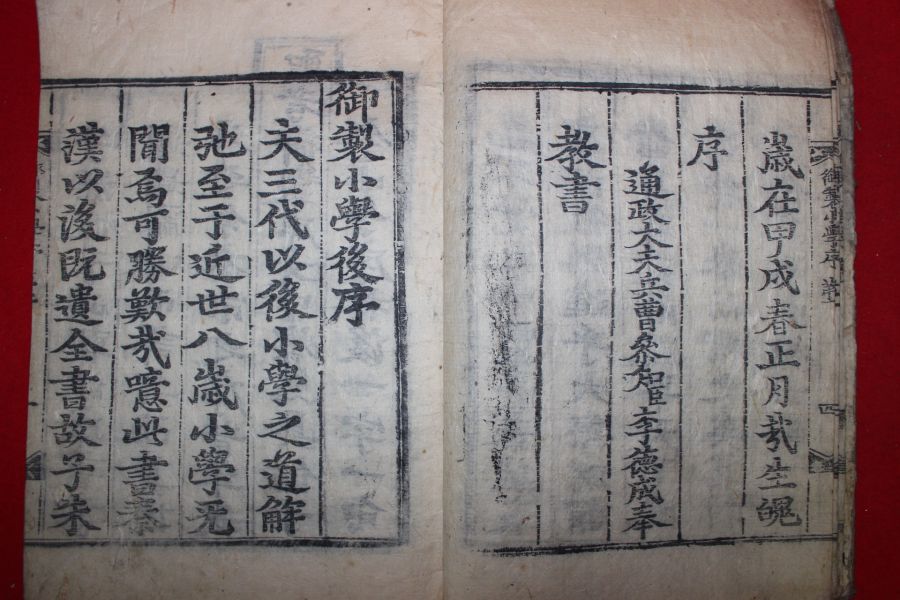 歲在甲戌春正月哉生魄
序
通政大夫兵曹參知臣李德成奉
教書
御製小學序
四
御製小學後序
夫三代以後小學之道解
弛至于近世八歲小學無
聞焉可勝歎哉噫此書秦
漢以後旣遺全書故子朱